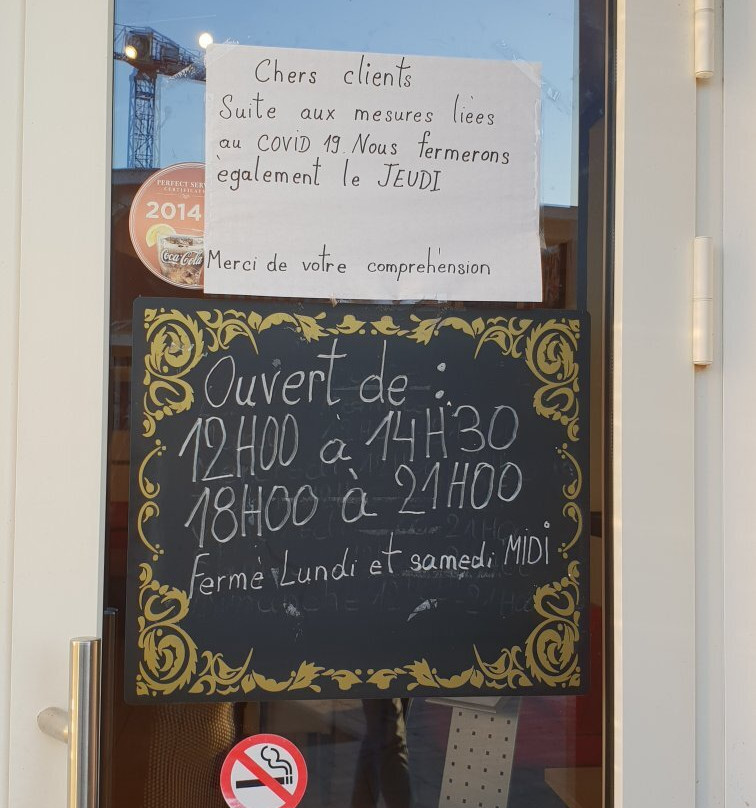 Chers clients
Suite aux mesures liées
au COVID 19. Nous fermerons
également le JEUDI
Merci de votre compréhension
PERFECT SER
2014
Coca-Cola
Ouvert de :
12H00 à 14H30
18H00 à 21H00
Fermé Lundi et samedi MIDI